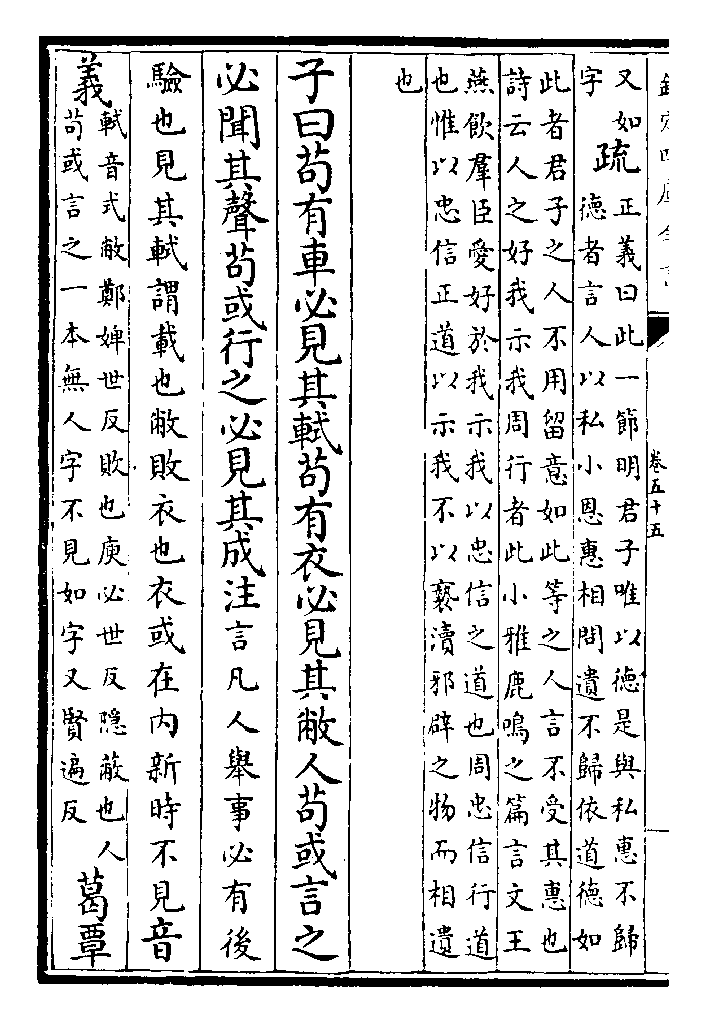 欽定四庫全書
卷五十五
又如
字
疏
正義曰此一節明君子唯以德是與私惠不歸
德者言人以私小恩惠相問遺不歸依道德如
此者君子之人不用留意如此等之人言不受其惠也
詩云人之好我示我周行者此小雅鹿鳴之篇言文王
燕飲羣臣愛好於我示我以忠信之道也周忠信行道
也惟以忠信正道以示我不以褻瀆邪辟之物而相遺
也
子曰苟有車必見其軾苟有衣必見其敝人苟或言之
必聞其聲苟或行之必見其成注言凡人舉事必有後
驗也見其軾謂載也敝敗衣也衣或在内新時不見音
義
軾音式敝鄭婢世反敗也庾必世反隠蔽也人
苟或言之一本無人字不見如字又賢遍反
葛覃